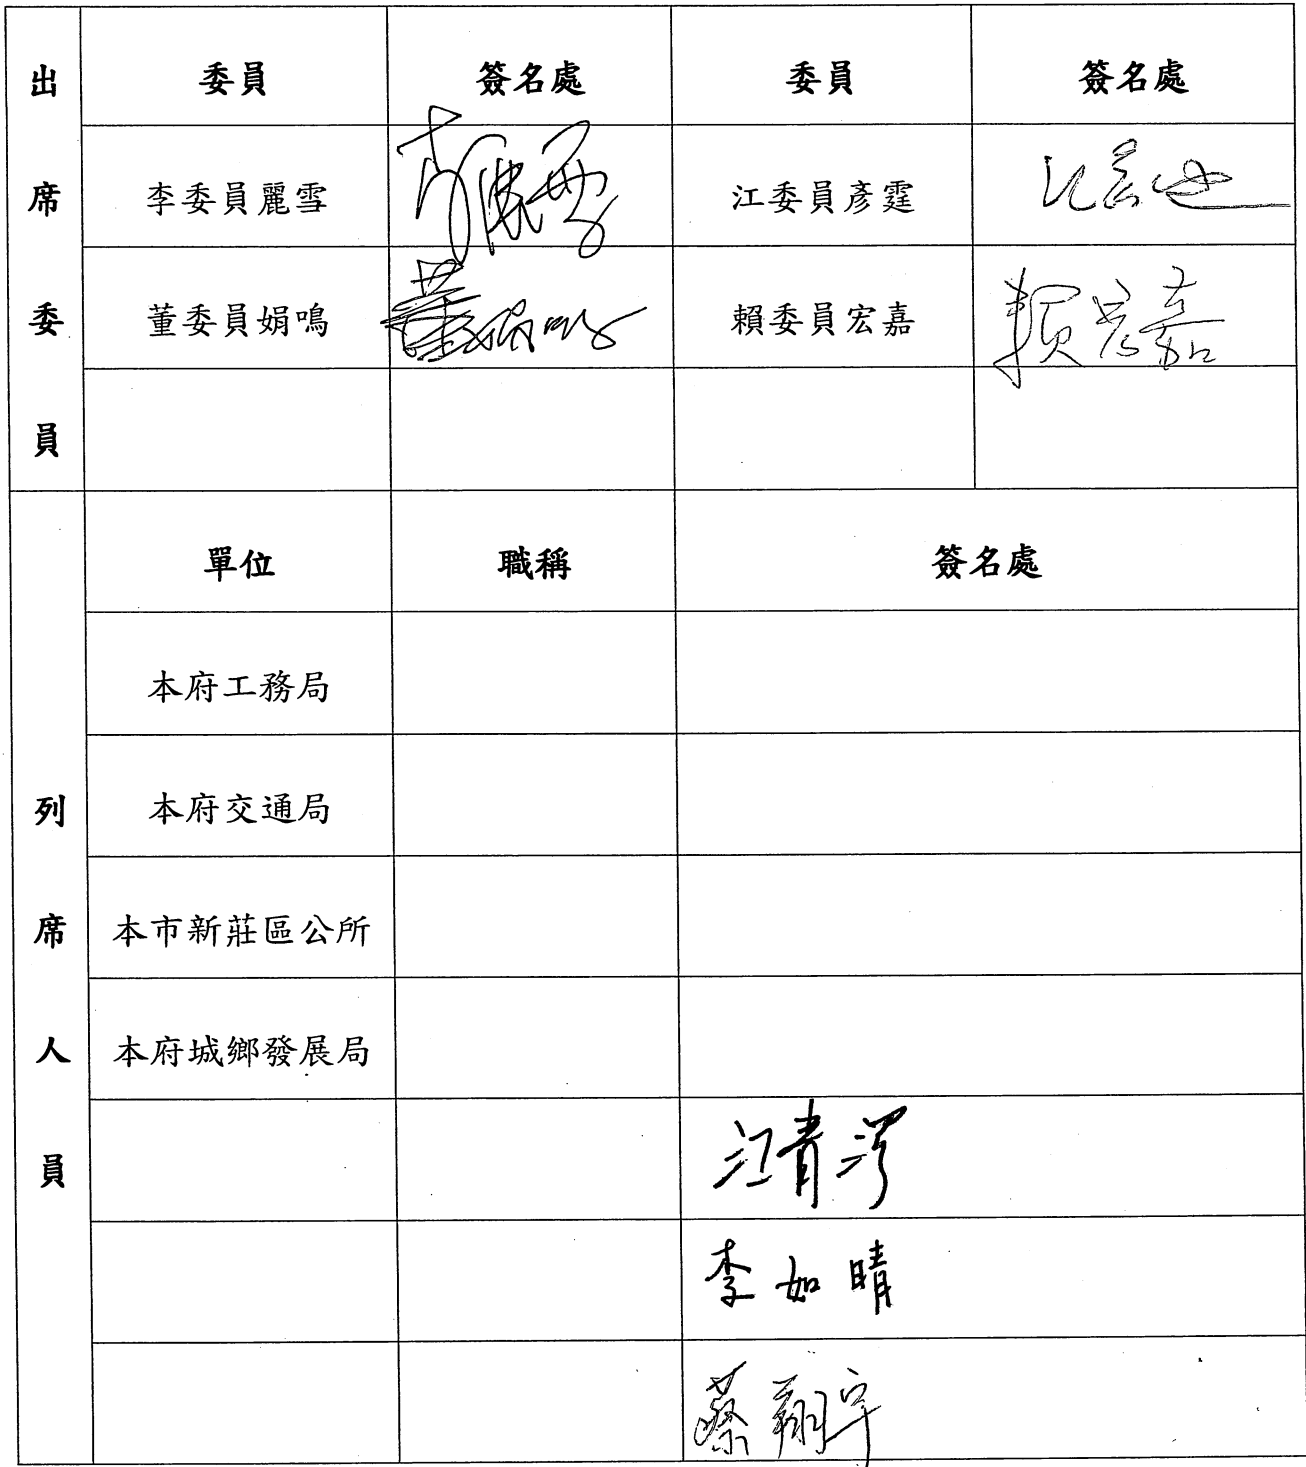 出席委員
委員 簽名處 委員 簽名處
李委員麗雪 李麗雪 江委員彥霆
董委員娟鳴 董娟鳴 賴委員宏嘉 賴宏嘉
列席人員
單位 職稱 簽名處
本府工務局
本府交通局
本市新莊區公所
本府城鄉發展局
江青澤
李如晴
蔡翔宇